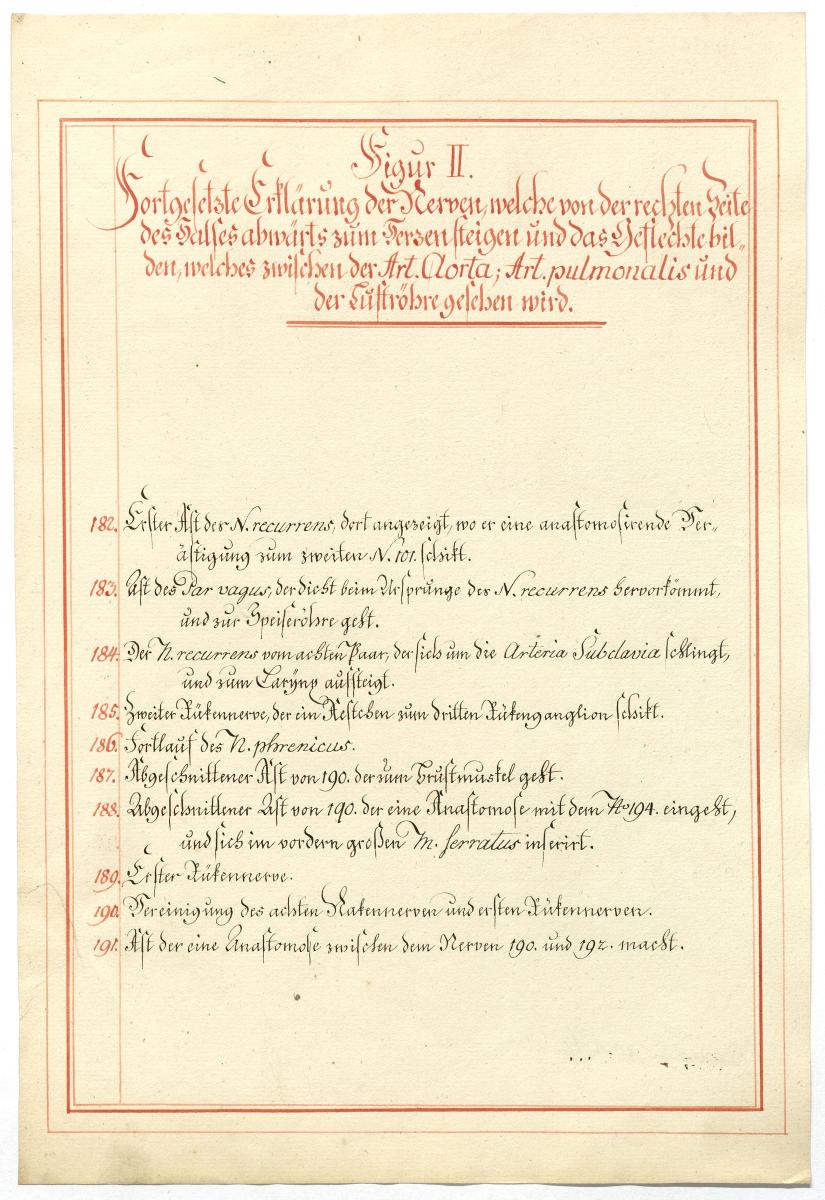 Figur II.
Fortgesetzte Erklärung der Nerven, welche von der rechten Seite
des Halses abwärts zum Herzen steigen und das Geflechte bil-
den, welches zwischen der Art. Aorta; Art. pulmonalis und
der Luftröhre gesehen wird.
182. Erster Ast des N. recurrens, dort angezeigt, wo er eine anastomosirende Ver-
ästigung zum zweiten N. 101. schikt.
183. Ast des Par vagus, der dicht beim Ursprunge des N. recurrens hervorkömmt,
und zur Speiseröhre geht.
184. Der N. recurrens vom achten Paar, der sich um die Arteria Subclavia schlingt,
und zum Larÿnx aufsteigt.
185. Zweiter Rükennerve, der ein Aestchen zum dritten Rükenganglion schikt.
186. Fortlauf des N. phrenicus.
187. Abgeschnittener Ast von 190. der zum Brustmuskel geht.
188. Abgeschnittener Ast von 190. der eine Anastomose mit dem No 194. eingeht,
und sich im vordern großen M. serratus inserirt.
189. Erster Rükennerve.
190. Vereinigung des achten Nakennerven und ersten Rükennerven.
191. Ast der eine Anastomose zwischen dem Nerven 190. und 192. macht.